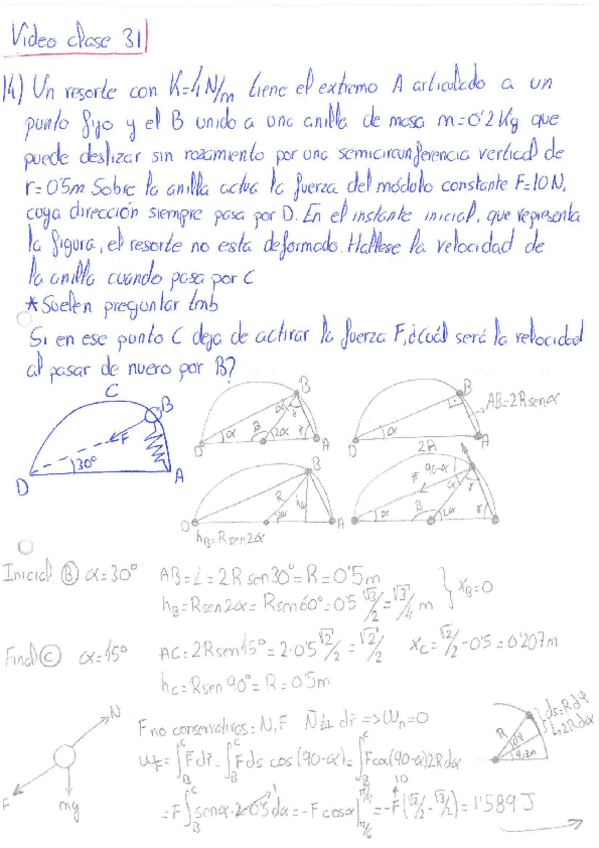 Video clase 31
14) Un resorte con K=4 N/m tiene el extremo A articulado a un
punto fijo y el B unido a una anilla de masa m=0'2 Kg que
puede deslizar sin rozamiento por una semicircunferencia vertical de
r=0'5m Sobre la anilla actua la fuerza del módulo constante F=10N,
cuya dirección siempre pasa por D. En el instante inicial, que representa
la figura, el resorte no esta deformado. Hallese la velocidad de
la anilla cuando pasa por C
*Suelen preguntar tmb
Si en ese punto C deja de actirar la fuerza F, ¿cuál será la velocidad
al pasar de nuevo por B?
C
B
F
30°
D
A
B
α
γ
α
B
2α
γ
D
A
B
AB=2Rsenα
α
D
2R
A
B
R
hB
2α
D
A
hB=Rsen2α
90-α
F
α
γ
α
B
2α
γ
Inicial (B) α=30° AB=L=2Rsen30°=R=0'5m
hB=Rsen2α=Rsen60°=0'5 √3/2=√3/4 m } xB=0
Final (C) α=45° AC=2Rsen45°=2·0'5 √2/2=√2/2 xC=√2/2-0'5=0'207m
hC=Rsen90°=R=0'5m
N
F
mg
F no conservativas: N, F N⊥dr => WN=0
WF=∫BC F dr=∫BC F ds cos(90-α)=∫BC Fcos(90-α)2Rdα
=F∫BC senα·2·0'5dα=-Fcosα|π/6 π/4=-F(√2/2-√3/2)=1'589J
10
ds=Rdφ
ds=2Rdα
R
dφ
φ=2α